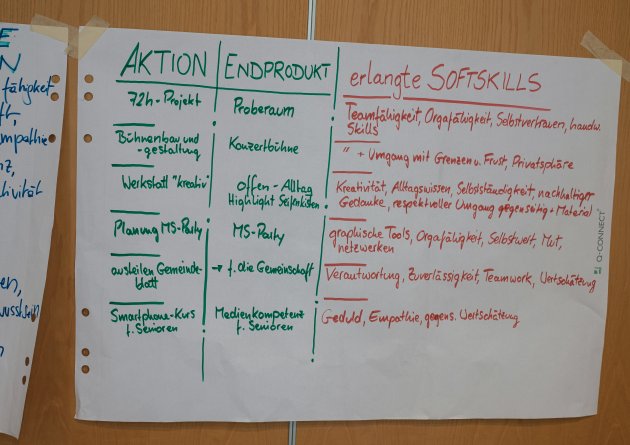 E
N
fähigkeit
AKTION
ENDPRODUKT
erlangte SOFTSKILLS
72h-Projekt
Proberaum
Teamfähigkeit, Orgafähigkeit, Selbstvertrauen, handw.
Skills
Bühnenbau und
-gestaltung
Konzertbühne
" + Umgang mit Grenzen u. Frust, Privatsphäre
Werkstatt "kreativ"
offen - Alltag
Highlight Seifenkisten
Kreativität, Alltagswissen, Selbstständigkeit, nachhaltiger
Gedanke, respektvoller Umgang gegenseitig + Material
Planung MS-Party
MS-Party
graphische Tools, Orgafähigkeit, Selbstwert, Mut,
netzwerken
austeilen Gemeinde-
blatt
→ f. die Gemeinschaft
Verantwortung, Zuverlässigkeit, Teamwork, Wertschätzung
Smartphone-Kurs
f. Senioren
Medienkompetenz
f. Senioren
Geduld, Empathie, gegens. Wertschätzung
Q-CONNECT